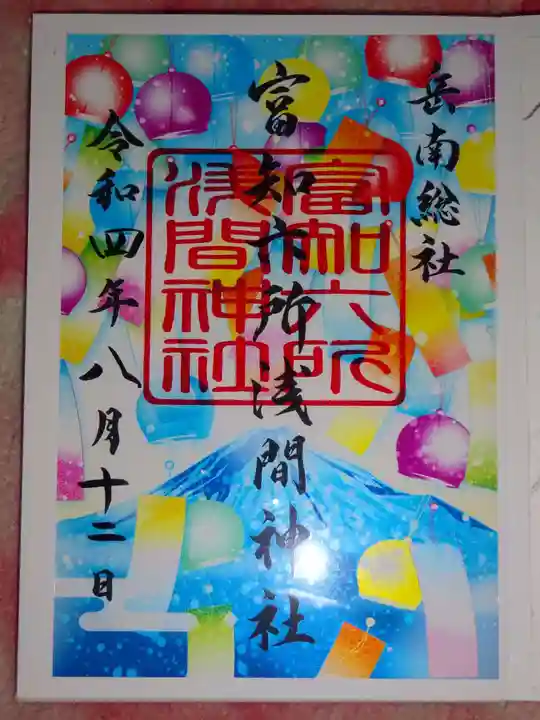 岳南総社
富知六所浅間神社
富知六所
浅間神社
令和四年八月十二日